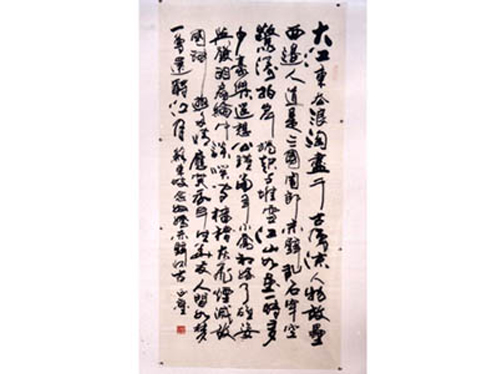 大江東去浪淘盡千古風流人物故壘
西邊人道是三國周郎赤壁亂石穿空
驚濤拍岸捲起千堆雪江山如畫一時多
少豪傑遙想公瑾當年小喬初嫁了雄姿
英發羽扇綸巾談笑間檣櫓灰飛煙滅故
國神遊多情應笑我早生華髮人間如夢
一尊還酹江月 蘇東坡念奴嬌赤壁懷古